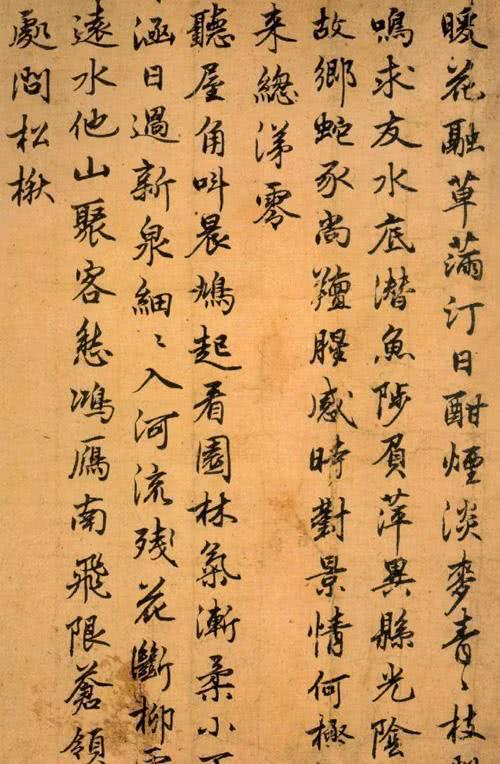 暖花融草滿汀日酣煙淡麥青〻枝
鳴求友水底潛魚陟負萍異縣光陰
故鄉蛇豕尚羶腥感時對景情何極
来總涕零
聽屋角叫晨鳩起看園林氣漸柔小
涵日過新泉細〻入河流残花斷柳
遠水他山聚客愁鴻鴈南飛限蒼領
處問松楸